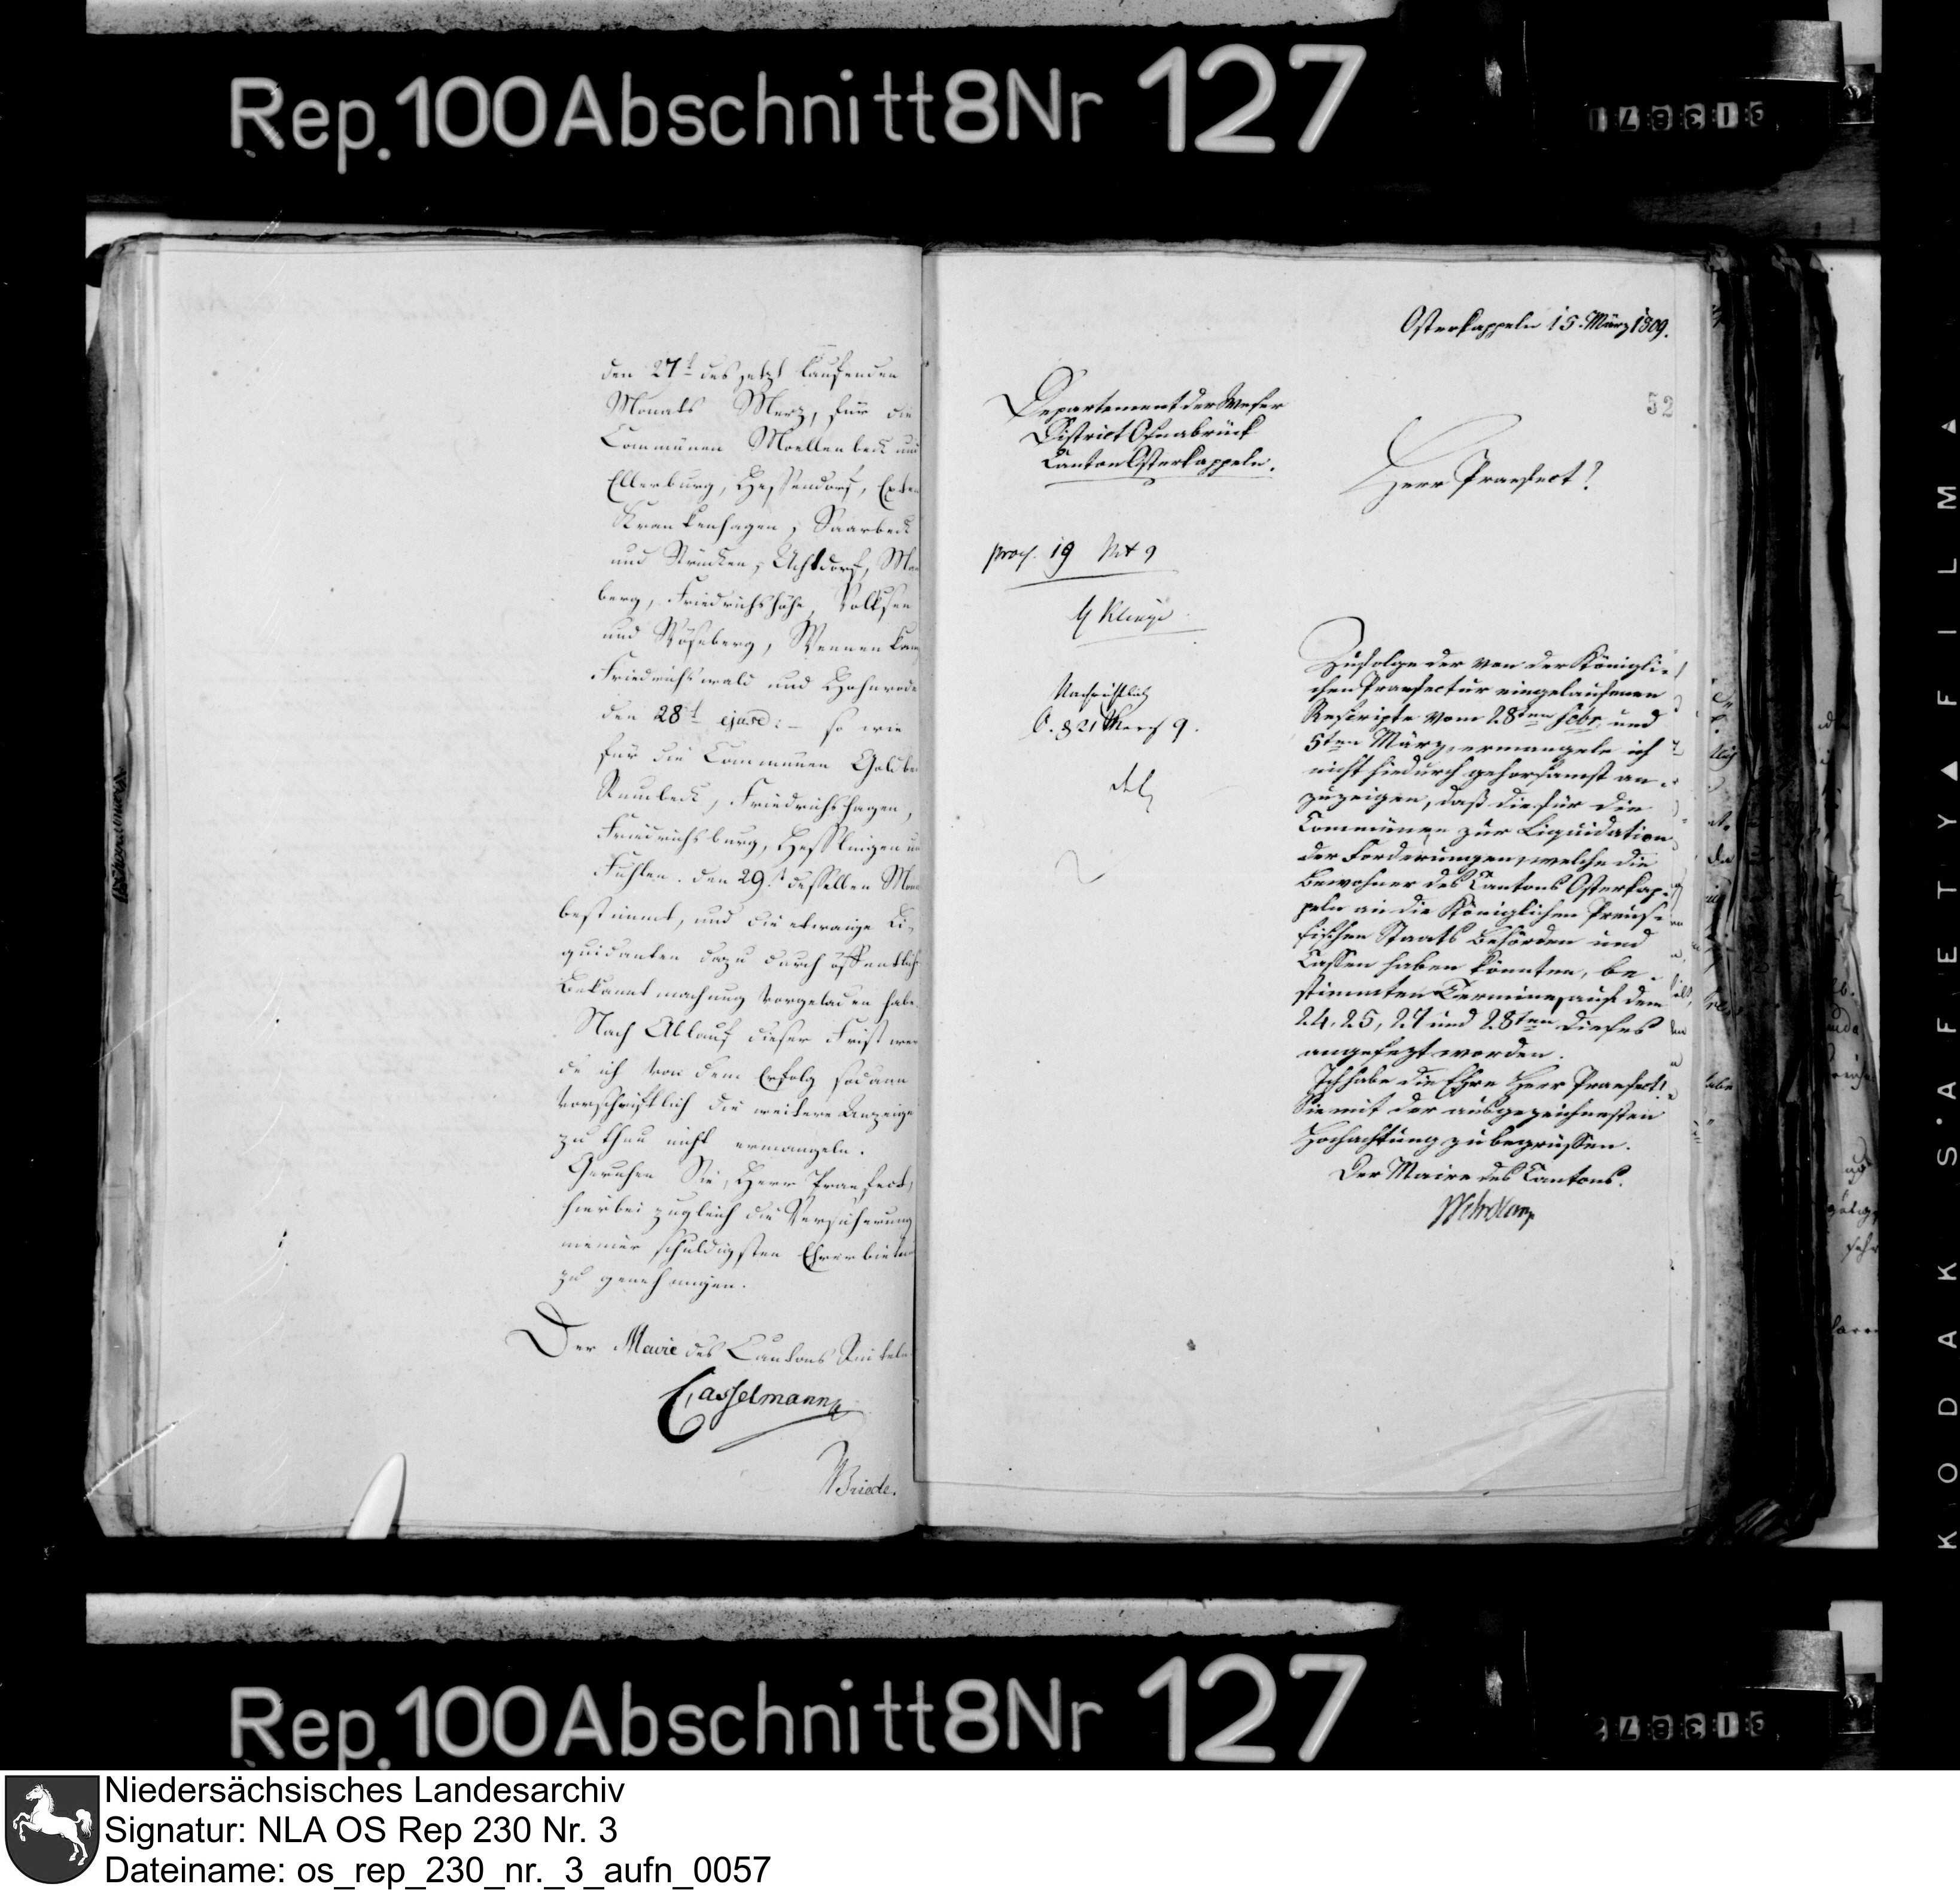 Rep. 100 Abschnitt 8 Nr 127
den 27t des jetzt laufenden
Monats Merz, für die
Communen Moellenbeck und
Ellerburg, Hessendorf, Exten
Krankenhagen, Saarbeck
und Strücken, Uchtdorf,
berg, Friedrichshöhe, Volksen
und Röseberg, Wennenkamp
Friedrichswald und Hohnrode
den 28t ejusd: – so wie
für die Communen Goldbeck
Rumbeck, Friedrichshagen,
Friedrichsburg, Hesslingen und
Fuhlen. den 29.t desselben
bestimmt, und die etwaige Li-
quidanten dazu durch öffentliche
Bekanntmachung vorgeladen habe.
Nach Ablauf dieser Frist wer
de ich von dem Erfolg sodann
vorschriftlich die weitere Anzeige
zu thun nicht ermangeln.
Geruhen Sie, Herr Praefect,
hierbei zugleich die Versicherung
meiner schuldigsten Ehrerbietung
zu genehmigen.
Der Maire des Cantons Rinteln
Casselmann
Briede.
Osterkappeln 15. März 1809.
52
Departement der Weser
District Osnabrück
Canton Osterkappeln.
Herr Praefect!
19
9
Zufolge der von der Königli-
chen Praefectur eingelaufenen
Rescripte vom 28ten Febr. und
5ten März, ermangele ich
nicht hiedurch gehorsamst an-
zuzeigen, daß die für die
Communen zur Liquidation
der Forderungen, welche die
Bewohner des Cantons Osterkap-
peln an die Königlichen Preus-
sischen Staats Behörden und
Cassen haben könnten, be-
stimmten Termine, auf den
24, 25, 27 und 28ten dieses
angesezt worden.
Ich habe die Ehre Herr Praefect!
Sie mit der ausgezeichnesten
Hochachtung zu begrüssen.
Der Maire des Cantons.
Rep. 100 Abschnitt 8 Nr 127
KODAK SAFETY FILM
Niedersächsisches Landesarchiv
Signatur: NLA OS Rep 230 Nr. 3
Dateiname: os_rep_230_nr._3_aufn_0057